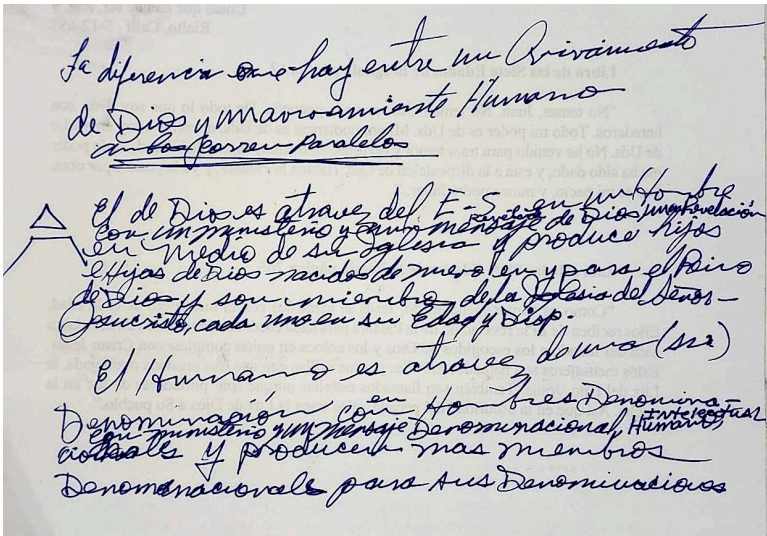 La diferencia que hay entre un Avivamiento
de Dios y un avivamiento Humano
ambos corren Paralelos
El de Dios es atravez del E-S. en un Hombre
con un ministerio y un mensaje de Dios, una Revelación
revelado
en medio de su Iglesia y produce hijos
e Hijas de Dios nacidos de nuevo en y para el Reino
de Dios y son miembros de la Iglesia del Señor
Jesucristo, cada uno en su Edad y Disp.
El Humano es atravez de una (s)
Denominación con en Hombres Denomina-
con ministerio y un mensaje Denominacional, Humano, Intelectual
cionales y producen mas miembros
Denomenacionals para sus Denominacions